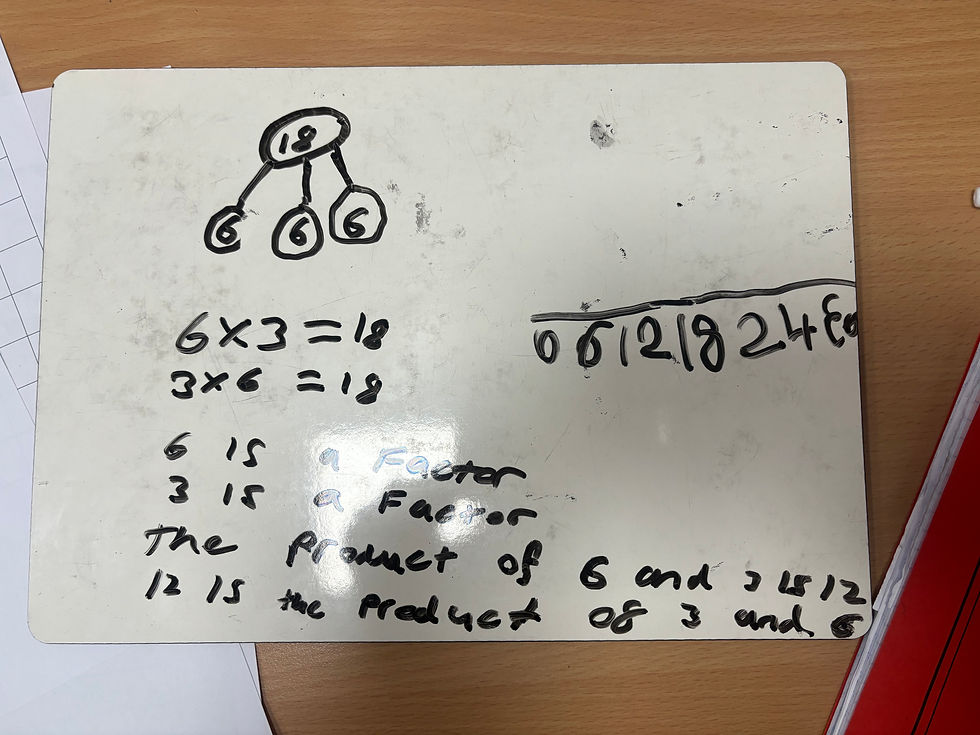 18
6 6 6
6×3=18
3×6=18
0 6 12 18 24 30
6 is a Factor
3 is a Factor
the product of 6 and 3 is 12
12 is the product of 3 and 6